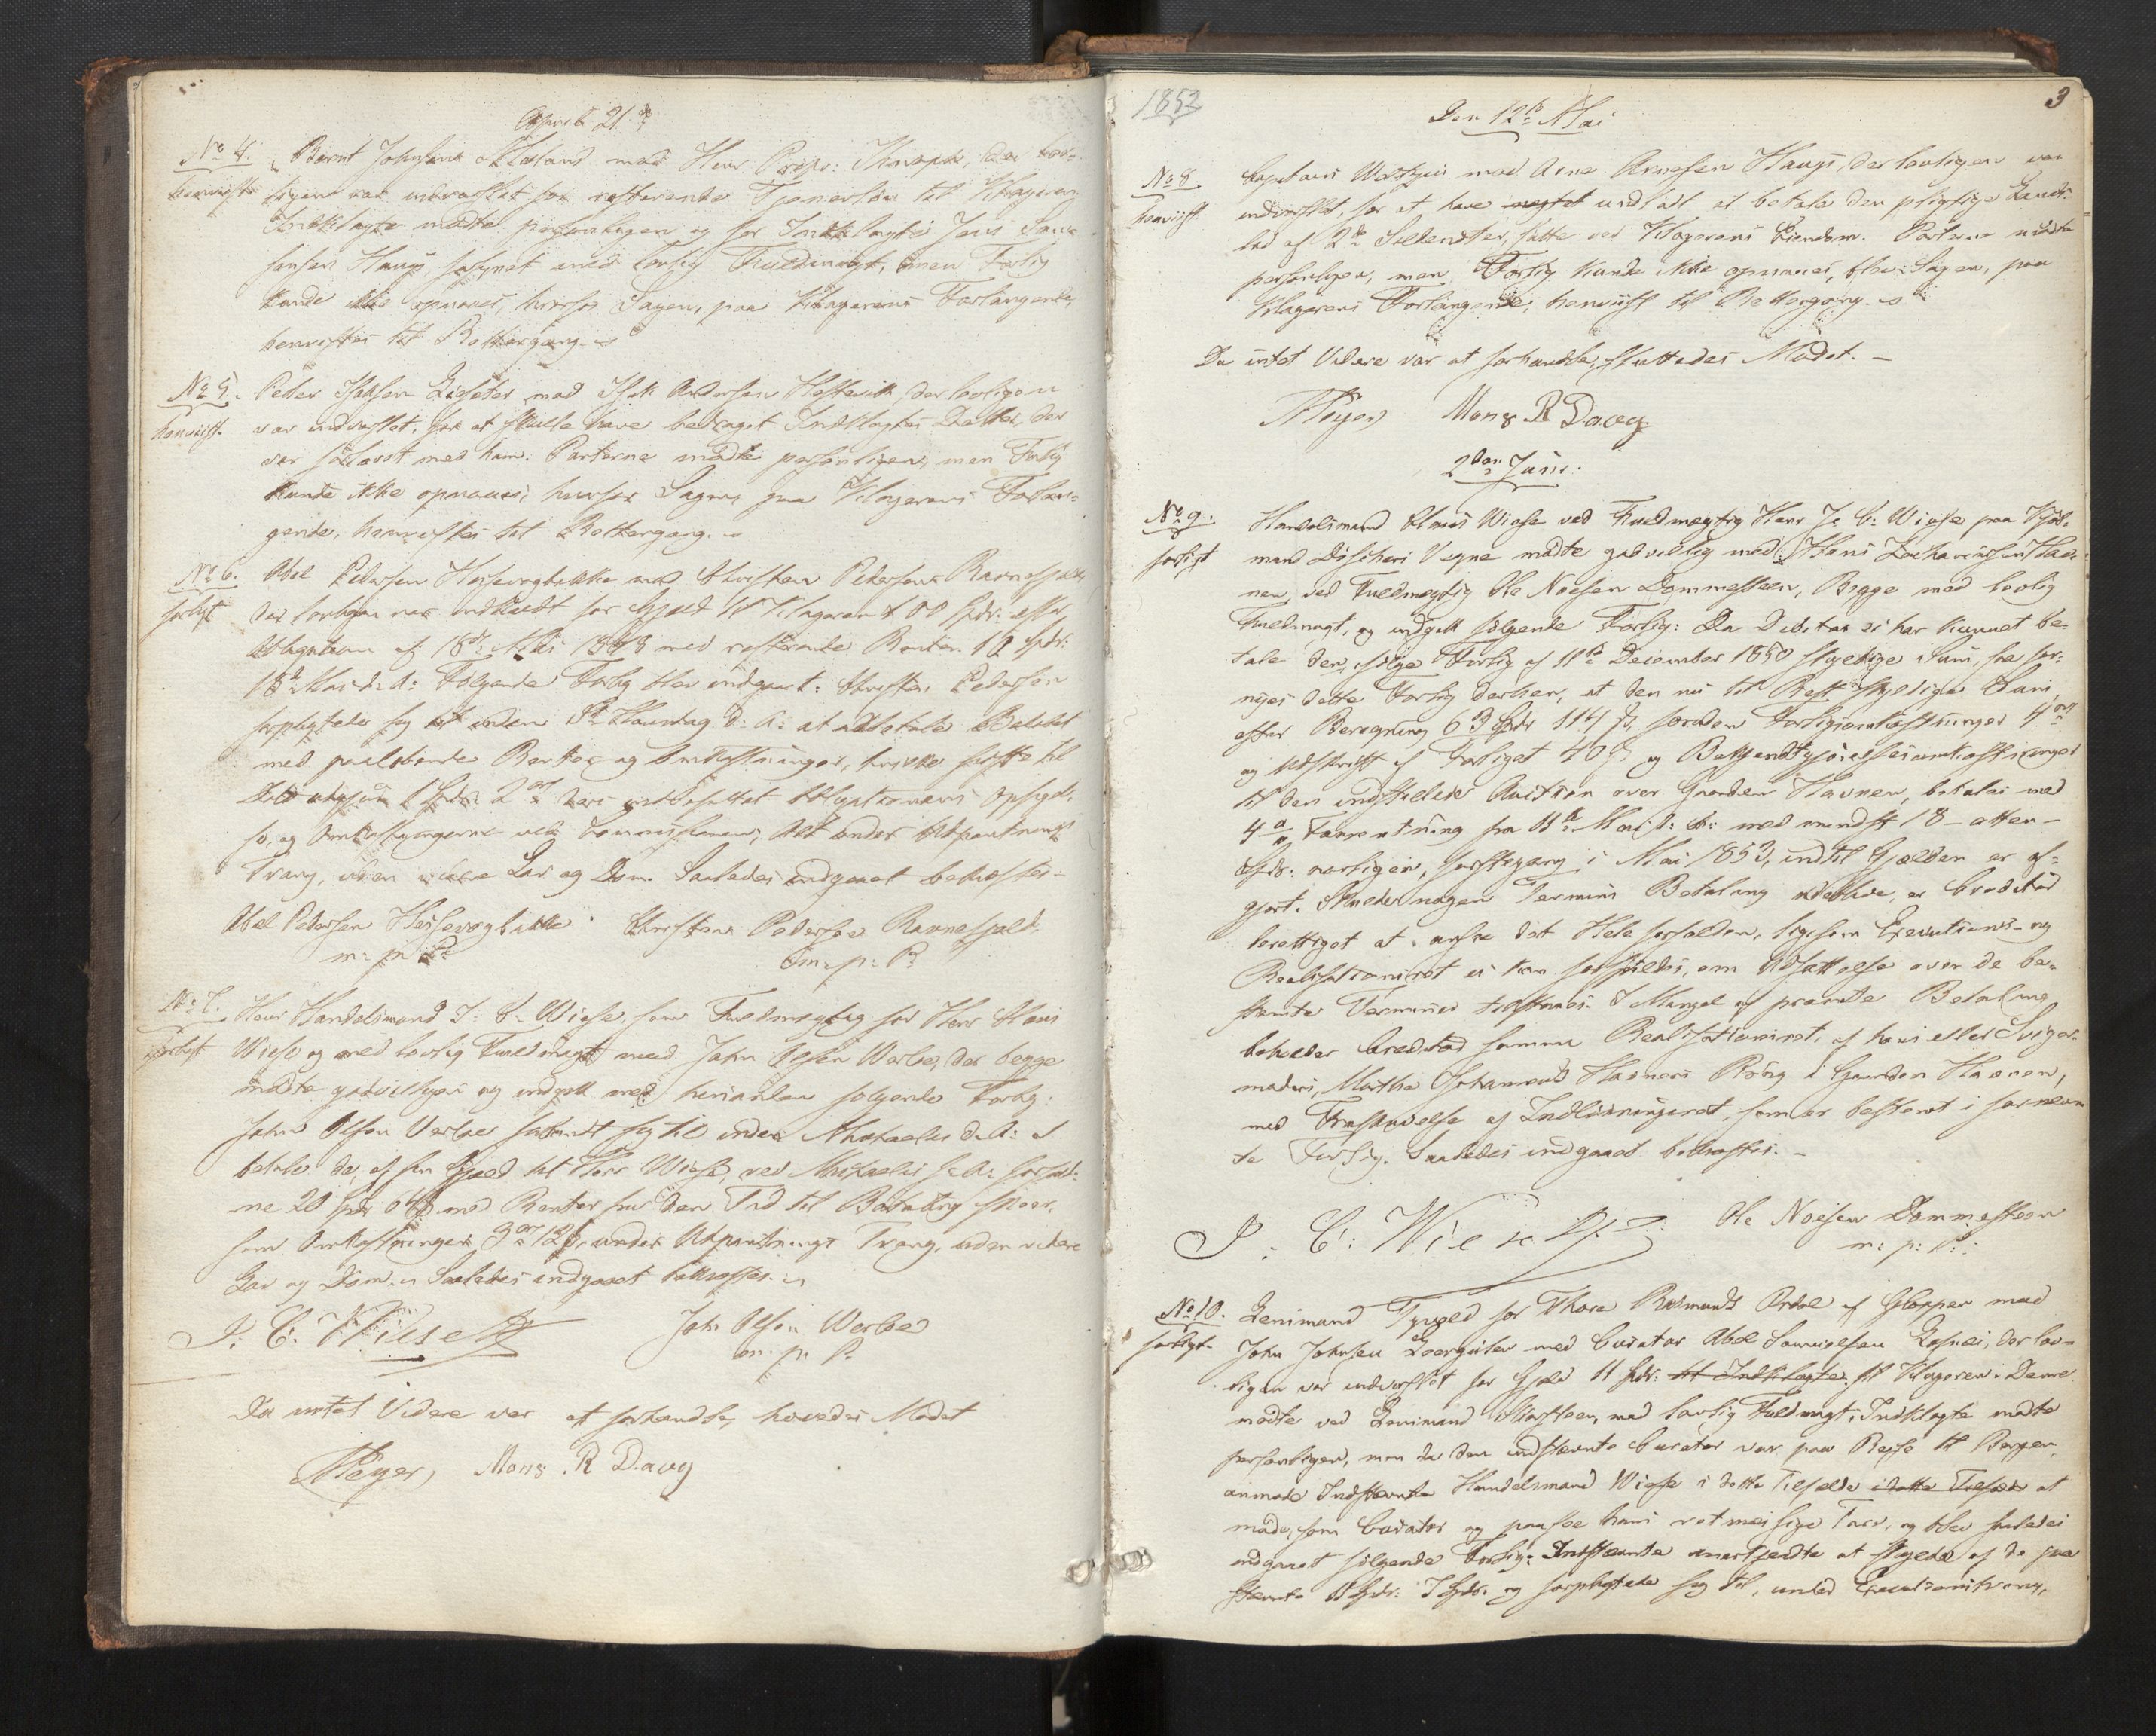 April 21de
No 4. Bernt Johnsens med Herr Propr: Knoph, der lov-
henviist ligen var indkaldt for resterende Tjenerløn til Klageren
Indklagte mødte personligen og for Indklagtes Jens
Hauge, forsynet med lovlig Fuldmagt, men Forlig
kunde ikke opnaaes, hvorfor Sagen, paa Klagerens Forlangende,
henvistes til Rettergang.
No 5. Peder med Isak Andersen der lovligen
henviist. var indkaldt, for at skulle have bedraget Indklagtes Datter, der
var forlovet med ham. Parterne mødte personligen, men Forlig
kunde ikke opnaaes, hvorfor Sagen, paa Klagerens Forlan-
gende, henvistes til Rettergang.
No 6. Abel Pedersen Heisevogbakke med Christen Pedersen Ravnefjeld,
forligt der lovligen var indkaldt for Gjæld til Klageren 100 Spdr: efter
Obligation af 18de Mai 1848 med resterende Renter 16 Spdr:
18de Mai d: A: Følgende Forlig blev indgaaet: Christen Pedersen
forpligtede sig til inden d: A: at udbetale Beløbet
med paaløbende Renter og Omkostninger, hvilke
1 Spdr: 2 ort
og Omkostningerne ved Commissionen, Alt under Udpantnings
Tvang, uden videre Lov og Dom. Saaledes indgaaet bekræftes.
Abel Pedersen Heisevogbakke Christen Pedersen Ravnefjeld.
m: p: P: m: p: P:
No 7. Herr Handelsmand J: C: Wiese som Fuldmægtig for Herr Claus
forligt Wiese og med lovlig Fuldmagt med John Olsen Werløe, der begge
mødte godvilligen og indgik med hinanden følgende Forlig:
John Olsen Verløe forbandt sig til inden Michaelis d: A: at
betale de, af sin Gjæld til Herr Wiese, ved Michaelis f: A: forfald-
ne 20 Spdr med Renter fra den Tid til Betaling skeer,
samt Omkostninger 3 ort 12 ß, under Udpantnings Tvang, uden videre
Lov og Dom. Saaledes indgaaet bekræftes.
J. C. Wiese John Olsen Werløe
m: p: P:
Da intet Videre var at forhandle, hævedes Mødet
Meyer, Mons R Davg
1852 3
Den 12te Mai
No 8. Capitain med Arne Arnesen Hauge, der lovligen var
henviist. indkaldt, for at have nægtet undladt at betale den pligtige Lands-
lod af 2de Sildenøter, satte ved Klagerens Eiendom. Parterne mødte
personligen, men Forlig kunde ikke opnaaes, blev Sagen, paa
Klagerens Forlangende, henviist til Rettergang.
Da intet Videre var at forhandle, sluttedes Mødet. —
Meyer, Mons R Davg
2den Juni:
No 9. Handelsmand Claus Wiese ved Fuldmægtig Herr J: C: Wiese paa Kjøb-
forligt mand Dischers Vegne mødte godvillig med Hans Zachariassen Hav-
nen, ved Fuldmægtig Ole Noesen Dommesteen, Begge med lovlig
Fuldmagt, og indgik følgende Forlig: Da Debitor ei har kunnet be-
tale den, ifølge Forlig af 11te December 1850 skyldige Sum, saa for-
nyes dette Forlig derhen, at den nu til Rest skyldige Sum,
efter Beregning 63 Spdr 114 ß, foruden Forligsomkostninger 4 ort
og Udskrift af Forliget 40 ß og Bekjendtgjørelsesomkostninger
til den indstillede Auction over Gaarden Havnen, betales med
4 % Forrentning fra 11te Mai d: A: med mindst 18 — atten —
Spdr: aarligen, førstegang i Mai 1853, indtil Gjælden er af-
gjort. Skulde nogen Termins Betaling udeblive, er Creditor
berettiget at ansee det Hele forfalden, ligesom Executions- og
Realisationsret ei kan forspildes, om Udsættelse over de be-
stemte Terminer tilstaaes. I Mangel af præcise Betaling
beholder Creditor samme Realisationsret, af hans eller Sviger-
moders, Marthe Johannesd: Havnens Brug i Gaarden Havnen,
med Fraskrivelse af Indløsningsret, som er bestemt i fornævn-
te Forlig. Saaledes indgaaet bekræftes. —
J: C: Wiese Ole Noesen Dommesteen
m: p: P:
No 10. Lensmand for Thore Rasmusd: Ardal af Gloppen med
forligt. John Johnsen med Curator Abel Samuelsen der lov-
ligen var indkaldt for Gjæld 11 Spdr: til Indklagte. til Klageren. Denne
mødte ved Lensmand med lovlig Fuldmagt, Indklagte mødte
personligen, men da den indstævnte Curator var paa Reise til Bergen,
anmode Indstævnte Handelsmand Wiese i dette Tilfælde i dette Tilfælde at
møde, som Curator og paasee hans retmæssige Tarv, og blev saaledes
indgaaet følgende Forlig: Indstævnte anerkjendte at skylde af de paa-
stævnte 11 Spdr: 7 Spdr: og forpligtede sig til, under Executionstvang,